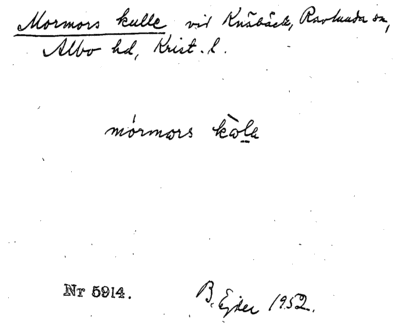 Mormors kulle vid Knäbäck, Ravlunda sn,
Albo hd, Krist. l.
mórmors kòla
Nr 5914.
B. Ejder 1952.